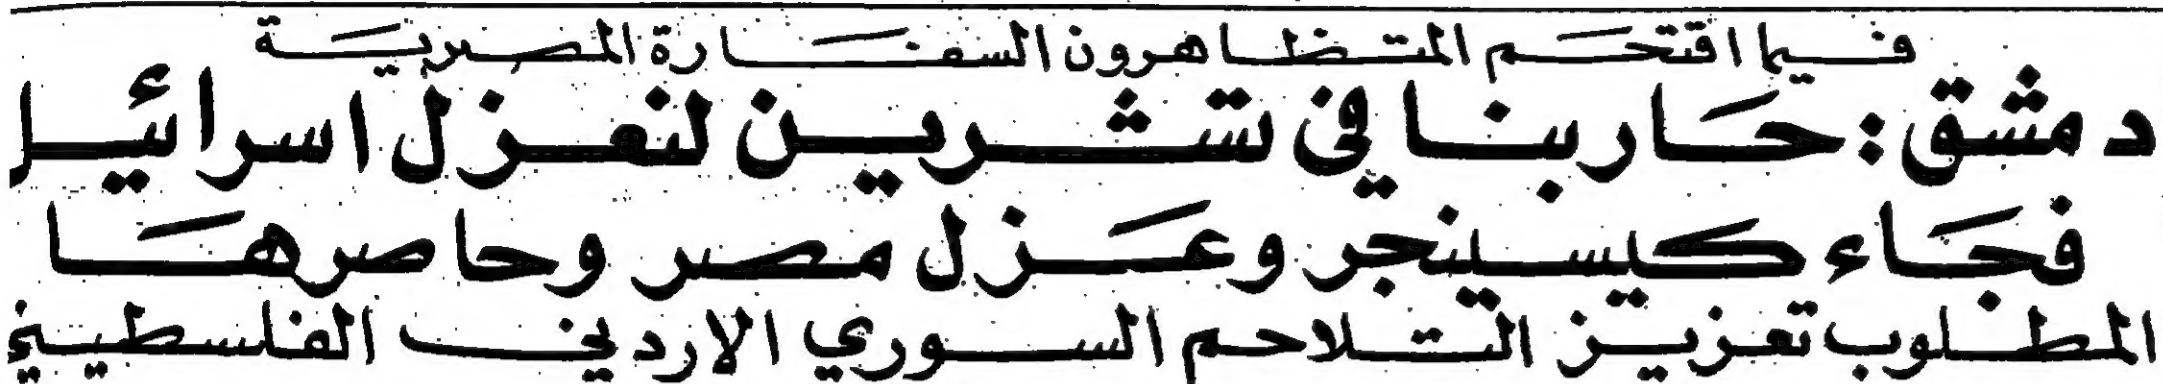 فيما اقتحم المتظاهرون السفارة المصرية
دمشق : حاربنا في تشرين لنعزل اسرائيل
فجاء كيسينجر وعزل مصر وحاصرها
المطلوب تعزيز التلاحم السوري الاردني الفلسطيني